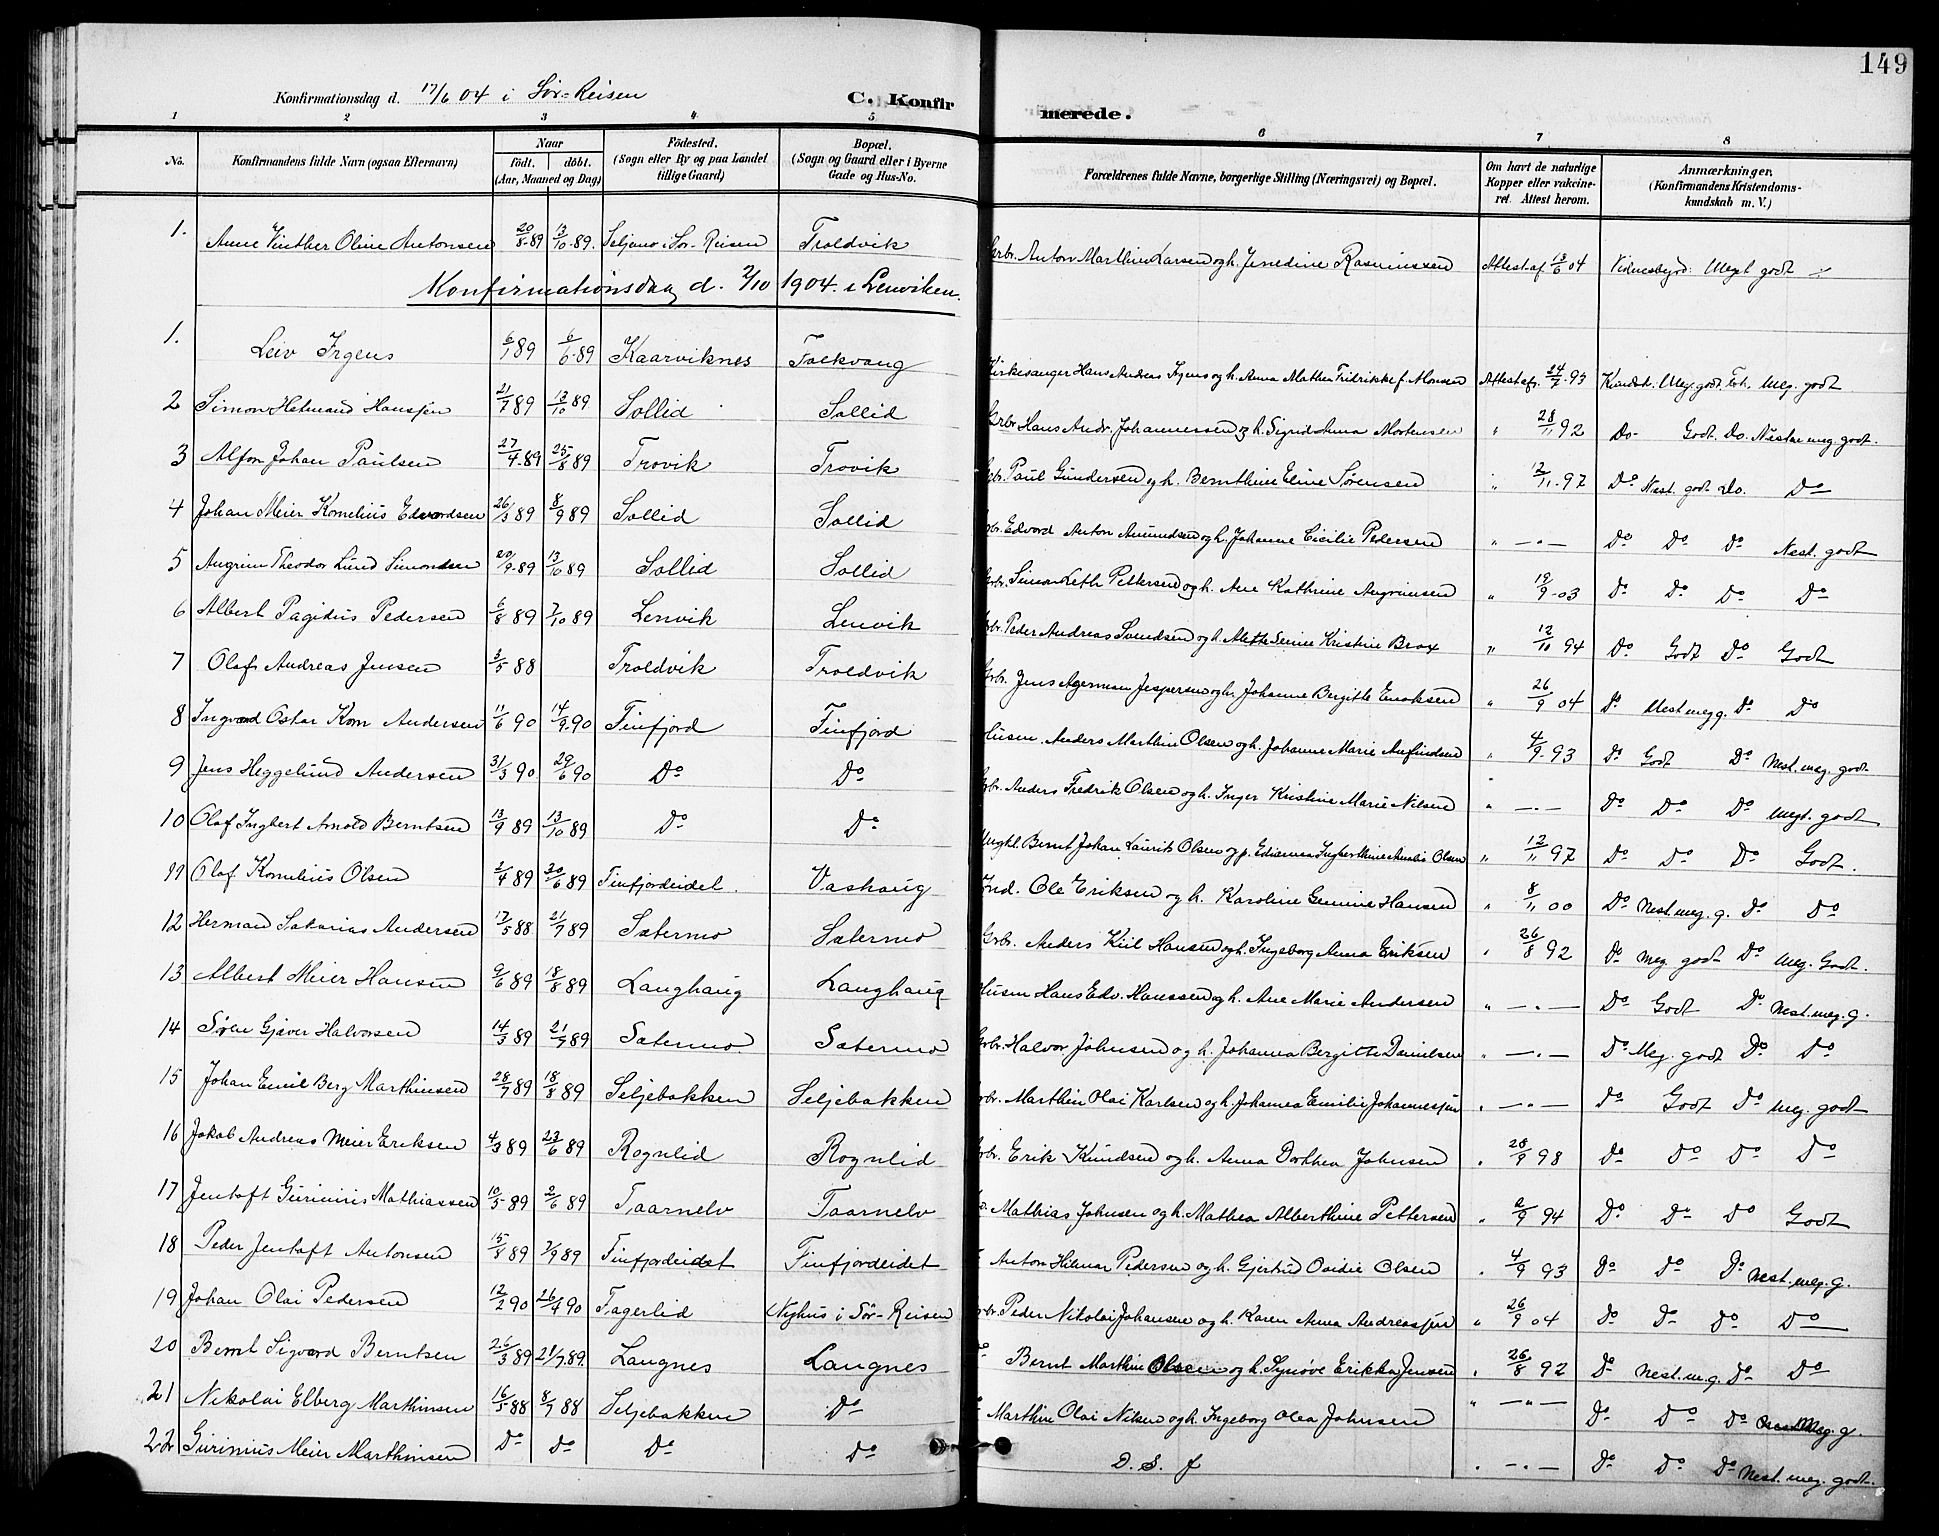 149
Konfirmationsdag d. 17/6 04 i Sör-Reisen C. Konfirmerede.
1 2 3 4 5 6 7 8
No. Konfirmandens fulde Navn (ogsaa Efternavn) Naar födt. döbt. (Aar, Maaned og Dag) Födested. (Sogn eller By og paa Landet tillige Gaard) Bopæl. (Sogn og Gaard eller i Byerne Gade og Hus-No. Forældrenes fulde Navne, borgerlige Stilling (Næringsvei) og Bopæl. Om havt de naturlige Kopper eller vakcineret. Attest herom. Anmærkninger. (Konfirmandens Kristendomskundskab m. V.)
1. Anne Vinther Oline Antonsen 20/8-89 13/10-89. i Sör-Reisen Troldvik Grbr. Anton Marthin Larsen og h. Jenedine Rasmussen Attest af 13/6 04 Vidnesbyrd: Meget godt
Konfirmationsdag d. 2/10 1904 i Lenviken.
1. Leiv Irgens 6/1 89 6/6-89 Kaarviknes Tolkvang Kirkesanger Hans Andreas Irgens og h. Anna Mathea Fredrikke f. Monsen Attest af 24/7-93 Kundsk. Meg. godt Meg. godt
2 Simon Hansjen 21/7 89 13/10 89 Sollid Sollid Grbr Hans Andr. Johannessen og h. Sigrid Anna Mortensen " 28/11 92 Do- Godt. Do. Næsten meg. godt.
3 Alfon Johan Paulsen 27/4-89 25/8 89 Trovik Trovik Grbr. Paul Gundersen og h. Bernthine Eline Sørensen " 12/11-97 Do Næst. godt Do. Do
4 Johan Meier Kornelius Edvardsen 26/3 89 8/9 89 Sollid Sollid Grbr. Edvard Anton Amundsen og h. Johanne Cicilie Pedersen " - " - Do Do Do Nest. godt
5 Angrim Theodor Lund Simonsen 20/9-89 13/10 89 Sollid Sollid Grbr. Simon Leth Pettersen og h. Ane Kathrine Angrimsen " 19/9-03 Do Do Do Do
6 Albert Pagidius Pedersen 6/8 89 7/10 89 Lenvik Lenvik Grbr. Peder Andreas Svendsen og h. Alette Serine Kristine Brox " 12/10 94 Do Godt Do Godt
7 Olaf Andreas Jensen 3/5 88 Troldvik Troldvik Grbr. Jens Agerman Jespersen og h. Johanne Bergitte Enoksen " 26/9 04 Do Nest. meg g. Do Do
8 Ingvard Oskar Korn Andersen 11/6 90 14/9-90 Finfjord Finfjord Husm. Anders Marthin Olsen og h. Johanne Marie Amfindsen " 4/9-93 Do Godt Do Nest. meg. godt
9 Jens Heggelund Andersen 31/3 90 29/6 90 Do Do Grbr. Anders Fredrik Olsen og h. Inger Kristine Marie Nilsen " - " - Do Do Do Megt. godt
10 Olaf Ingbert Arnold Berntsen 13/9 89 13/10 89 Do Do Ungkl. Bernt Johan Laurits Olsen og p. Ingberthine Amalie Olsen " 12/11 97 Do Do Do Godt.
11 Olaf Kornelius Olsen 2/4 89 30/6 89 Finfjordeidet. Vashaug Ind. Ole Eriksen og h. Karoline Gemine Hansen " 8/11 00 Do Nest. meg. g. Do Do
12 Herman Sakarias Andersen 17/5 88 21/7 89 Sætermo Sætermo Grbr. Anders Kiil Hansen og h. Ingeborg Anna Eriksen " 26/8 92 Do Meg. godt Do Meg. Godt.
13 Albert Meier Hansen 9/6 89 18/8 89 Langhaug Langhaug Husm Hans Edv. Hanssen og h. Ane Marie Andersen " - " - Do Godt Do Nest. meg. g.
14 Søren Gjæver Halvorsen 14/3 89 21/7 89 Sætermo. Sætermo Grbr. Halvor Johnsen og h. Johanna Bergitte Danielsen " - " - Do Meg. godt Do Do
15 Johan Emil Berg Marthinsen 28/7 89 18/8 89 Seljebakken Seljebakken Grbr. Marthin Olai Karlsen og h. Johanna Emilie Johannesjen " - " - Do Godt Do Meg. godt
16 Jakob Andreas Meier Eriksen 4/3 89 23/6 89 Rognlid Rognlid Grbr. Erik Knudsen og h. Anna Dorthea Johnsen " 28/9 98 Do Do Do Do
17 Jentoft Gurinius Mathiassen 10/5-89 2/6 89 Taarnelv Taarnelv Mathias Johnsen og h. Mathea Alberthine Pettersen " 2/9 94 Do Do Do Godt
18 Peder Jentoft Antonsen 15/8 89 7/9 89 Finfjordeidet Finfjordeidet Anton Hilmar Pedersen og h. Gjertrud Ovidie Olsen " 4/9 93 Do Do Do Nest. meg. g.
19 Johan Olai Pedersen 12/2 90 26/7 90 Fagerlid Nyhus i Sör-Reisen Grbr. Peder Nikolai Johansen og h. Karen Anna Andreasjen " 26/9 04 Do Do Do Do
20 Bernt Sigvard Berntsen 26/3 89 21/7.89. Langnes Langnes Bernt Marthin Olsen og h. Synøve Erikka Jensen " 26/8 92 Do Nest. m. g. Do Do
21 Nikolai Elberg Marthinsen 16/5 88 8/7 88 Seljebakken Do Marthin Olai Nilsen og h. Ingeborg Olea Johnsen " - " - Do Do Do Meg. g.
22 Gurinius Meier Marthinsen Do Do Do Do D. S. f " - " - Do Do Do Nest. meg. godt.